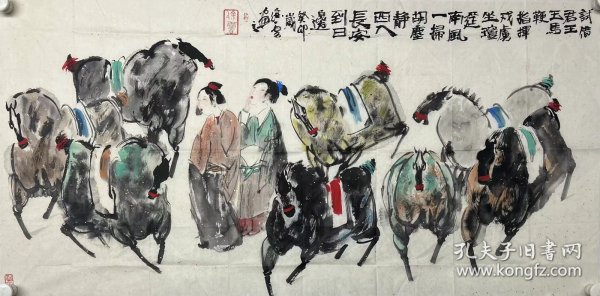 試借
君王
玉馬
鞭
指揮
戎虜
坐瓊
筵
南風
一掃
胡塵
靜
西入
長安
到日
邊
癸卯
歲
畫之
孔夫子旧书网
www.kongfz.com